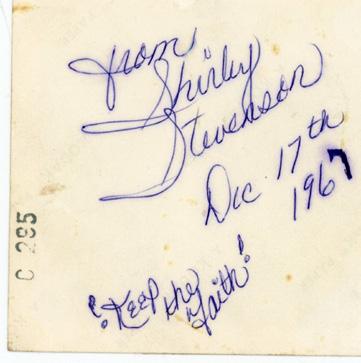 from
Shirley
Stevenson
Dec 17th
1967
"Keep the
Faith!"
C 285